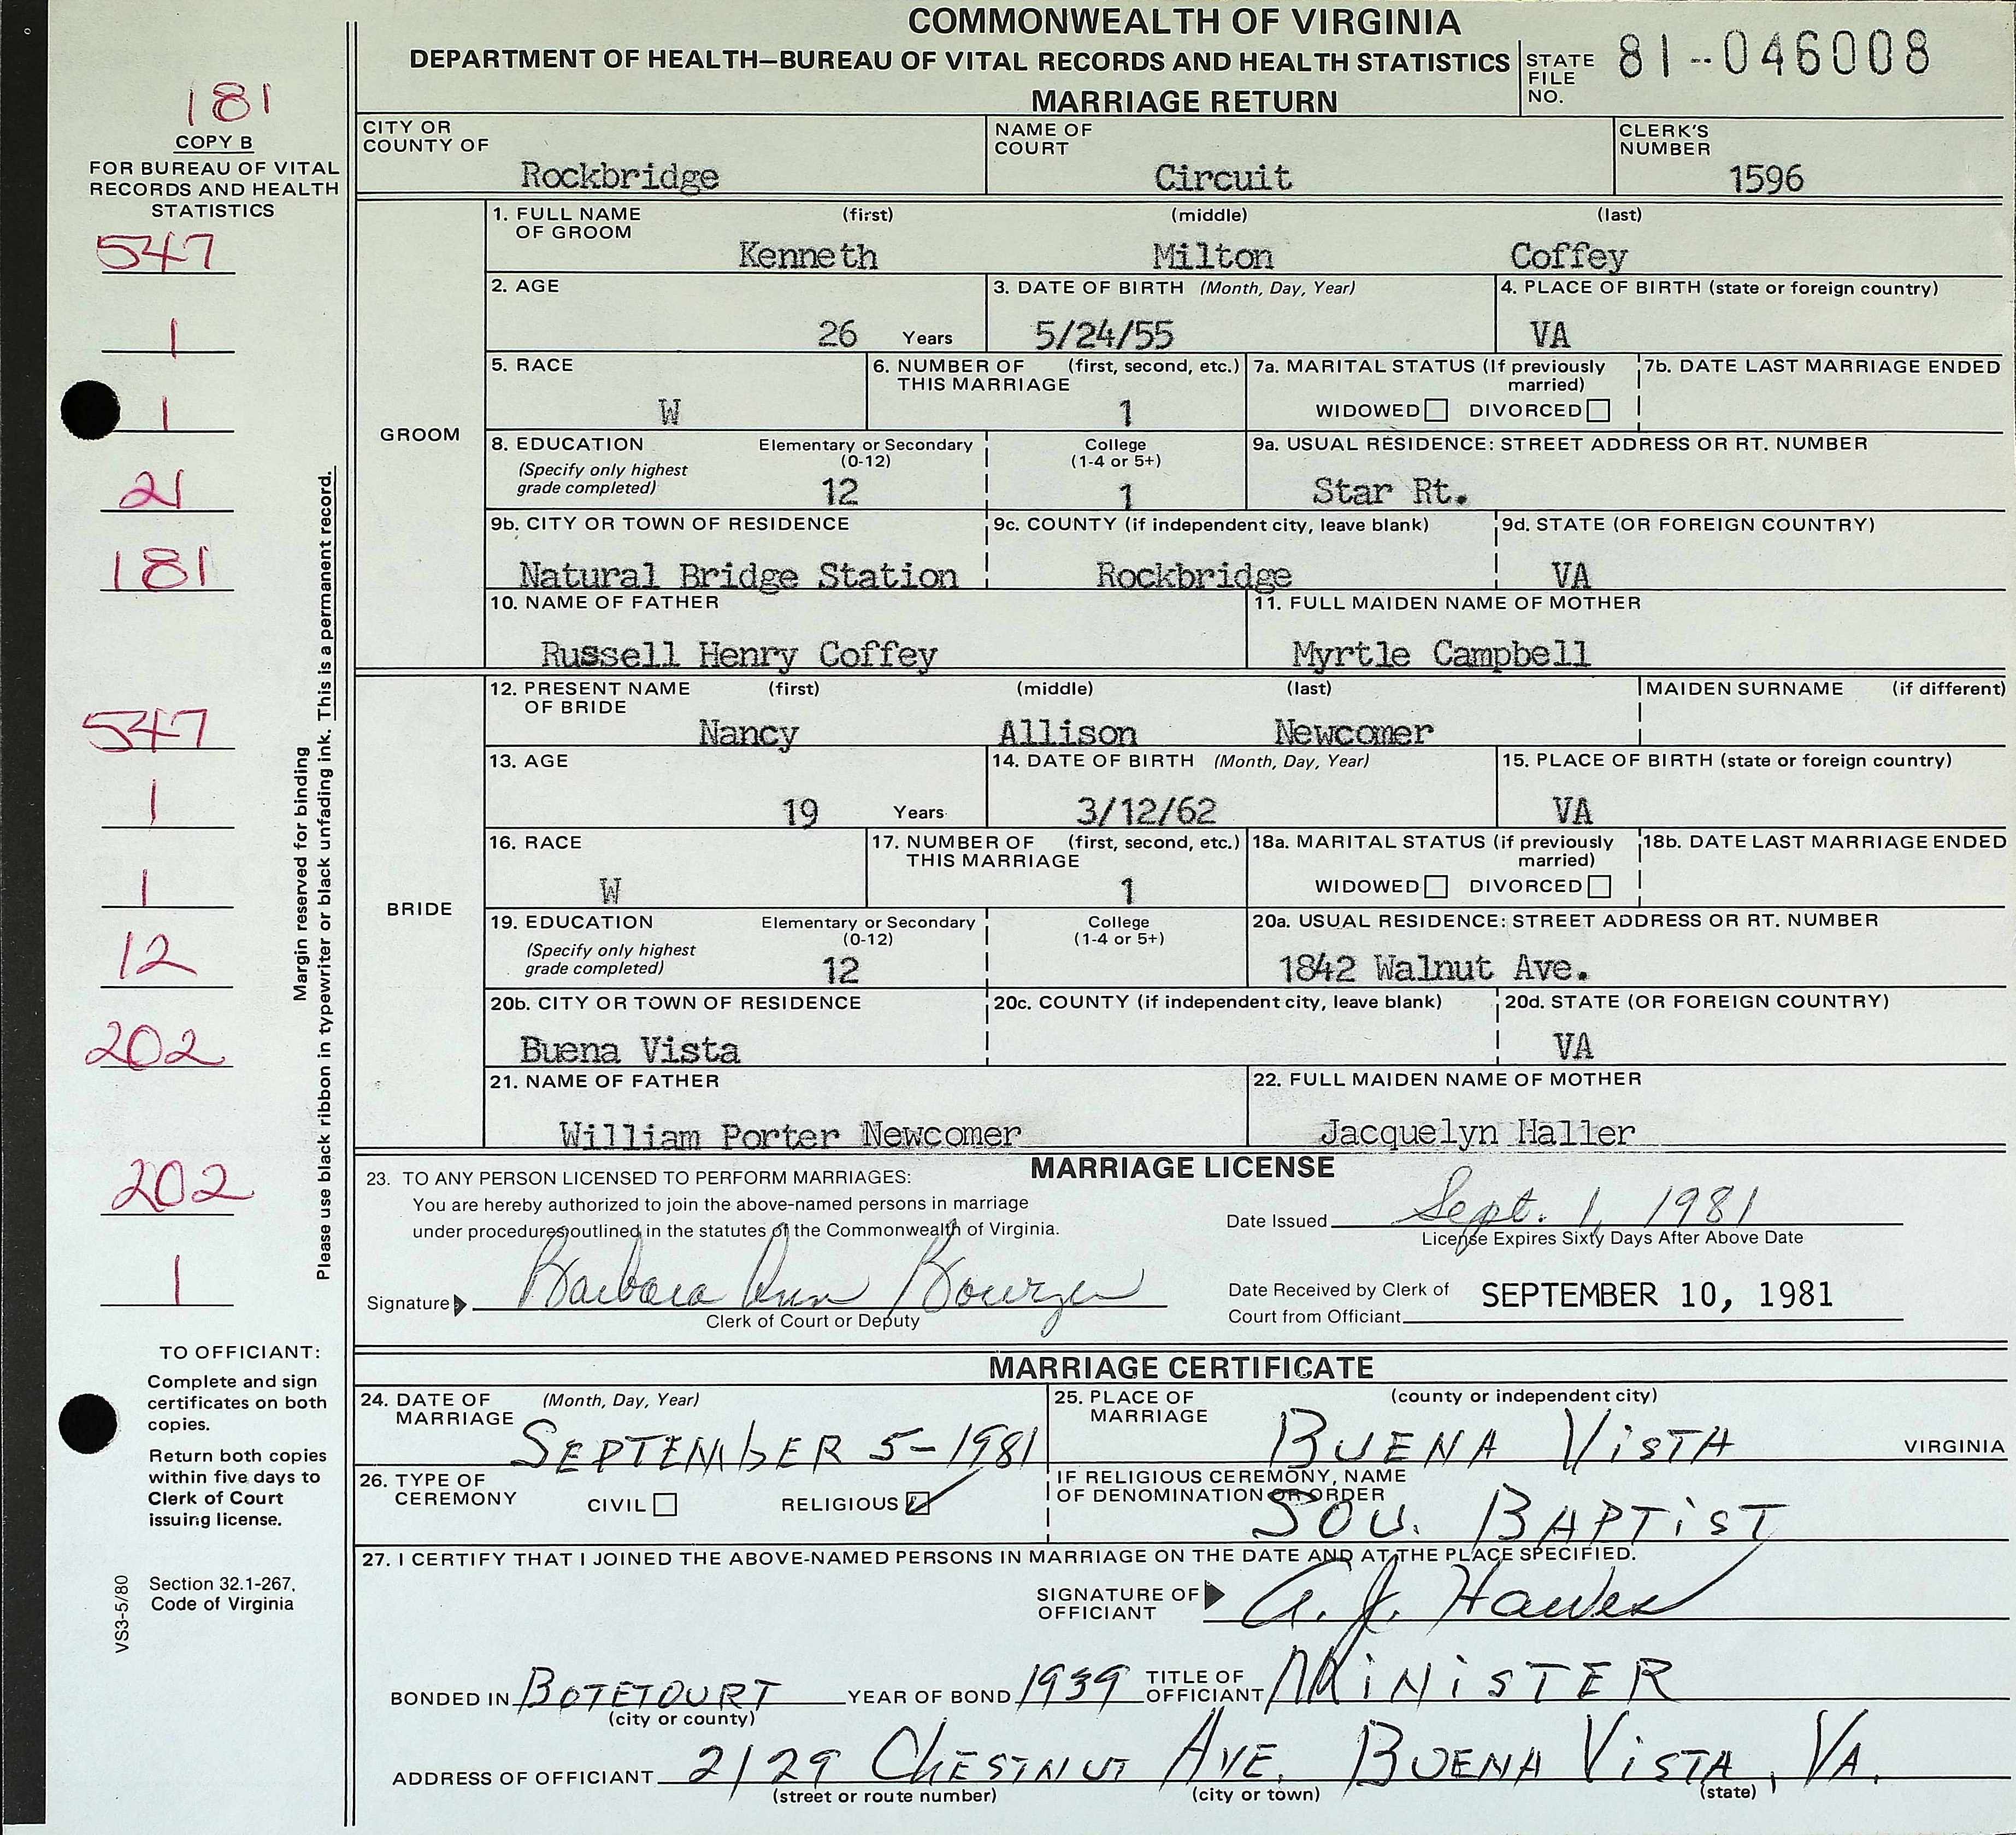 COMMONWEALTH OF VIRGINIA
DEPARTMENT OF HEALTH—BUREAU OF VITAL RECORDS AND HEALTH STATISTICS
MARRIAGE RETURN
STATE FILE NO. 81--046008
181
COPY B
FOR BUREAU OF VITAL
RECORDS AND HEALTH
STATISTICS
547
1
1
21
181
547
1
1
12
202
202
1
Margin reserved for binding
Please use black ribbon in typewriter or black unfading ink. This is a permanent record.
TO OFFICIANT:
Complete and sign
certificates on both
copies.
Return both copies
within five days to
Clerk of Court
issuing license.
Section 32.1-267,
Code of Virginia
VS3-5/80
CITY OR COUNTY OF Rockbridge
NAME OF COURT Circuit
CLERK'S NUMBER 1596
GROOM
1. FULL NAME OF GROOM (first) (middle) (last)
Kenneth Milton Coffey
2. AGE 26 Years
3. DATE OF BIRTH (Month, Day, Year) 5/24/55
4. PLACE OF BIRTH (state or foreign country) VA
5. RACE W
6. NUMBER OF THIS MARRIAGE (first, second, etc.) 1
7a. MARITAL STATUS (If previously married) WIDOWED DIVORCED
7b. DATE LAST MARRIAGE ENDED
8. EDUCATION (Specify only highest grade completed) Elementary or Secondary (0-12) 12
College (1-4 or 5+) 1
9a. USUAL RESIDENCE: STREET ADDRESS OR RT. NUMBER Star Rt.
9b. CITY OR TOWN OF RESIDENCE Natural Bridge Station
9c. COUNTY (if independent city, leave blank) Rockbridge
9d. STATE (OR FOREIGN COUNTRY) VA
10. NAME OF FATHER Russell Henry Coffey
11. FULL MAIDEN NAME OF MOTHER Myrtle Campbell
BRIDE
12. PRESENT NAME OF BRIDE (first) (middle) (last) MAIDEN SURNAME (if different)
Nancy Allison Newcomer
13. AGE 19 Years
14. DATE OF BIRTH (Month, Day, Year) 3/12/62
15. PLACE OF BIRTH (state or foreign country) VA
16. RACE W
17. NUMBER OF THIS MARRIAGE (first, second, etc.) 1
18a. MARITAL STATUS (if previously married) WIDOWED DIVORCED
18b. DATE LAST MARRIAGE ENDED
19. EDUCATION (Specify only highest grade completed) Elementary or Secondary (0-12) 12
College (1-4 or 5+)
20a. USUAL RESIDENCE: STREET ADDRESS OR RT. NUMBER 1842 Walnut Ave.
20b. CITY OR TOWN OF RESIDENCE Buena Vista
20c. COUNTY (if independent city, leave blank)
20d. STATE (OR FOREIGN COUNTRY) VA
21. NAME OF FATHER William Porter Newcomer
22. FULL MAIDEN NAME OF MOTHER Jacquelyn Haller
MARRIAGE LICENSE
23. TO ANY PERSON LICENSED TO PERFORM MARRIAGES:
You are hereby authorized to join the above-named persons in marriage
under procedures outlined in the statutes of the Commonwealth of Virginia.
Date Issued Sept. 1, 1981
License Expires Sixty Days After Above Date
Signature Barbara Ann
Clerk of Court or Deputy
Date Received by Clerk of
Court from Officiant SEPTEMBER 10, 1981
MARRIAGE CERTIFICATE
24. DATE OF MARRIAGE (Month, Day, Year) SEPTEMBER 5-1981
25. PLACE OF MARRIAGE (county or independent city) BUENA VISTA VIRGINIA
26. TYPE OF CEREMONY CIVIL RELIGIOUS
IF RELIGIOUS CEREMONY, NAME
OF DENOMINATION OR ORDER
SOU. BAPTIST
27. I CERTIFY THAT I JOINED THE ABOVE-NAMED PERSONS IN MARRIAGE ON THE DATE AND AT THE PLACE SPECIFIED.
SIGNATURE OF OFFICIANT A. J. Hawes
BONDED IN BOTETOURT YEAR OF BOND 1939 TITLE OF OFFICIANT MINISTER
(city or county)
ADDRESS OF OFFICIANT 2129 CHESTNUT AVE. BUENA VISTA, VA.
(street or route number) (city or town) (state)